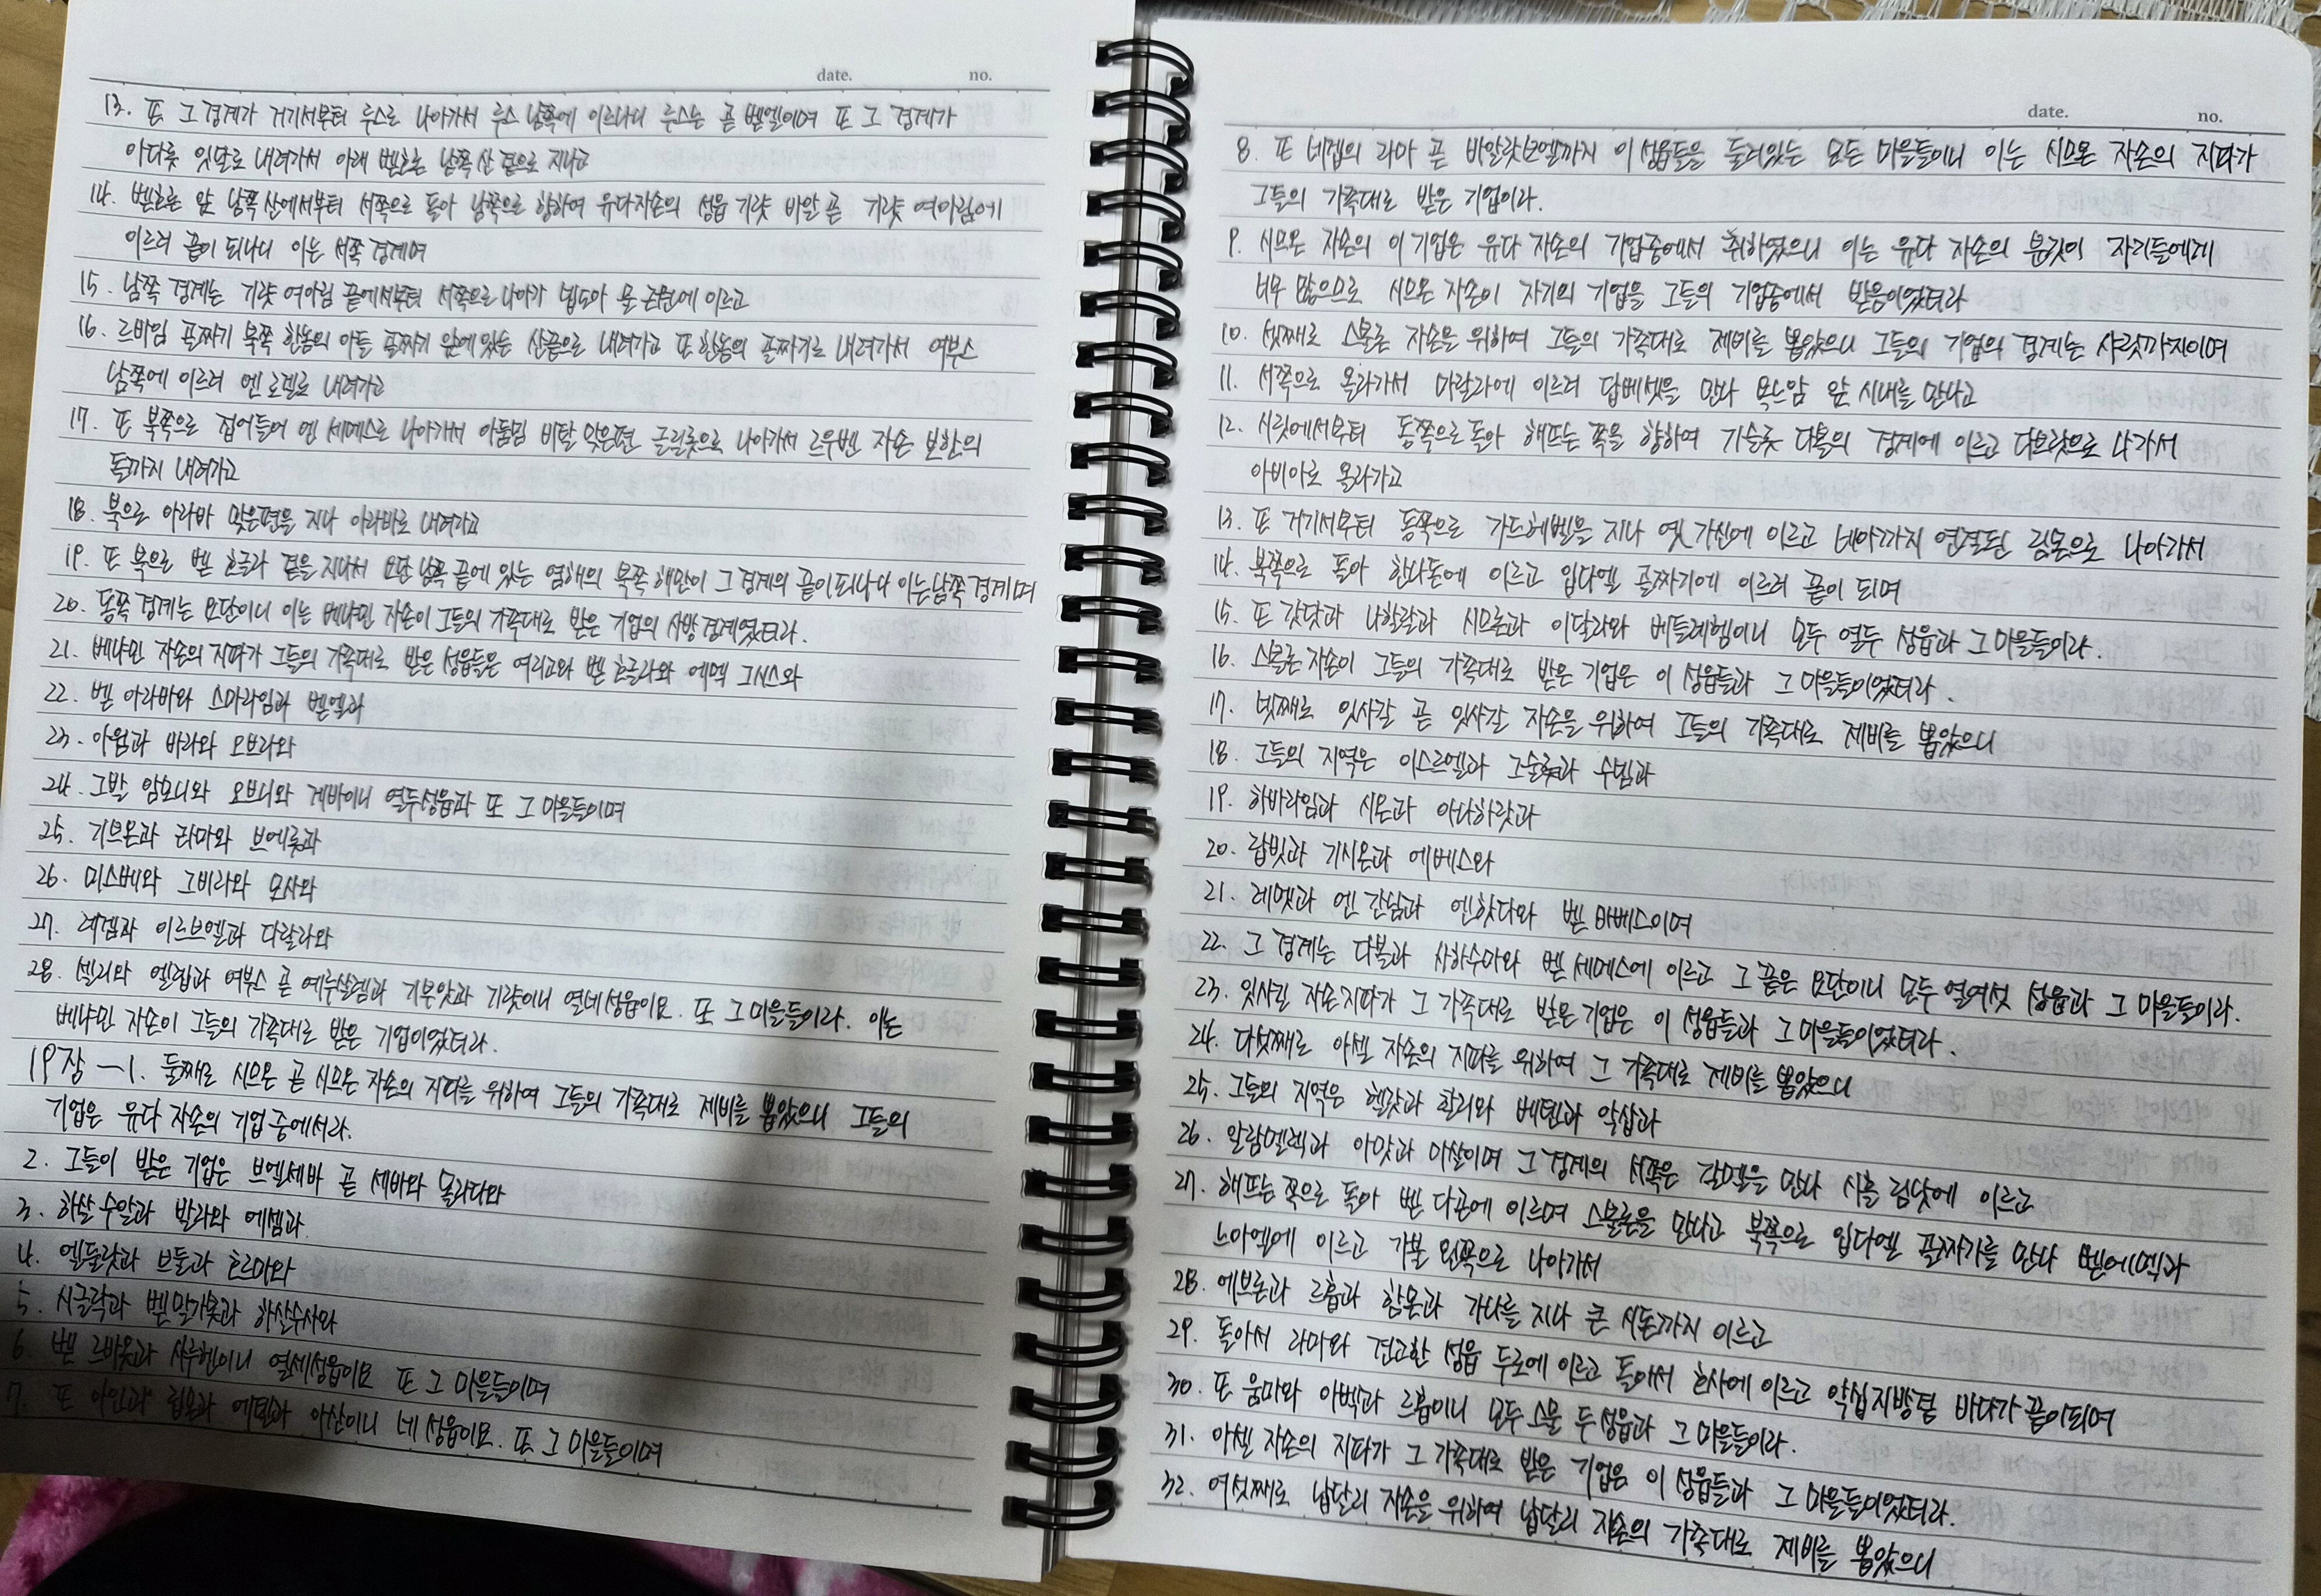 date. no.
13. 또 그 경계가 거기서부터 루스로 나아가서 루스 남쪽에 이르나니 루스는 곧 벧엘이며 또 그 경계가
아다롯 앗달로 내려가서 아래 벧호론 남쪽 산 곁으로 지나고
14. 벧호론 앞 남쪽 산에서부터 서쪽으로 돌아 남쪽으로 향하여 유다자손의 성읍 기럇 바알 곧 기럇 여아림에
이르러 끝이 되나니 이는 서쪽 경계며
15. 남쪽 경계는 기럇 여아림 끝에서부터 서쪽으로 나아가 넵도아 물 근원에 이르고
16. 르바임 골짜기 북쪽 힌놈의 아들 골짜기 앞에 있는 산끝으로 내려가고 또 힌놈의 골짜기로 내려가서 여부스
남쪽에 이르러 엔 로겔로 내려가고
17. 또 북쪽으로 접어들어 엔 세메스로 나아가서 아둠밈 비탈 맞은편 글릴롯으로 나아가서 르우벤 자손 보한의
돌까지 내려가고
18. 북으로 아라바 맞은편을 지나 아라바로 내려가고
19. 또 북으로 벧 호글라 곁을 지나서 요단 남쪽 끝에 있는 염해의 북쪽 해만이 그 경계의 끝이 되나니 이는 남쪽 경계며
20. 동쪽 경계는 요단이니 이는 베냐민 자손이 그들의 가족대로 받은 기업의 사방 경계였더라.
21. 베냐민 자손의 지파가 그들의 가족대로 받은 성읍들은 여리고와 벧 호글라와 에멕 그시스와
22. 벧 아라바와 스마라임과 벧엘과
23. 아윔과 바라와 오브라와
24. 그발 암모니와 오브니와 게바이니 열두성읍과 또 그 마을들이며
25. 기브온과 라마와 브에롯과
26. 미스베와 그비라와 모사와
27. 레겜과 이르브엘과 다랄라와
28. 셀라와 엘렙과 여부스 곧 예루살렘과 기부앗과 기럇이니 열네성읍이요. 또 그 마을들이라. 이는
베냐민 자손이 그들의 가족대로 받은 기업이었더라.
19장 -1. 둘째로 시므온 곧 시므온 자손의 지파를 위하여 그들의 가족대로 제비를 뽑았으니 그들의
기업은 유다 자손의 기업 중에서라.
2. 그들이 받은 기업은 브엘세바 곧 세바와 몰라다와
3. 하살 수알과 발라와 에셈과
4. 엘돌랏과 브둘과 호르마와
5. 시글락과 벧 말가봇과 하살수사와
6. 벧 르바옷과 사루헨이니 열세성읍이요 또 그 마을들이며
7. 또 아인과 림몬과 에델과 아산이니 네 성읍이요. 또 그 마을들이며
date. no.
8. 또 네겝의 라마 곧 바알랏브엘까지 이 성읍들을 둘러있는 모든 마을들이니 이는 시므온 자손의 지파가
그들의 가족대로 받은 기업이라.
9. 시므온 자손의 이 기업은 유다 자손의 기업중에서 취하였으니 이는 유다 자손의 분깃이 자기들에게
너무 많으므로 시므온 자손이 자기의 기업을 그들의 기업중에서 받음이었더라
10. 셋째로 스불론 자손을 위하여 그들의 가족대로 제비를 뽑았으니 그들의 기업의 경계는 사릿까지이며
11. 서쪽으로 올라가서 마랄라에 이르러 답베셋을 만나 욕느암 앞 시내를 만나고
12. 사릿에서부터 동쪽으로 돌아 해뜨는 쪽을 향하여 기슬롯 다볼의 경계에 이르고 다브랏으로 나가서
야비아로 올라가고
13. 또 거기서부터 동쪽으로 가드헤벨을 지나 엣 가신에 이르고 네아까지 연결된 림몬으로 나아가서
14. 북쪽으로 돌아 한나돈에 이르고 입다엘 골짜기에 이르러 끝이 되며
15. 또 갓닷과 나할랄과 시므론과 이달라와 베들레헴이니 모두 열두 성읍과 그 마을들이라.
16. 스불론 자손이 그들의 가족대로 받은 기업은 이 성읍들과 그 마을들이었더라.
17. 넷째로 잇사갈 곧 잇사갈 자손을 위하여 그들의 가족대로 제비를 뽑았으니
18. 그들의 지역은 이스르엘과 그술롯과 수넴과
19. 하바라임과 시온과 아나하랏과
20. 랍빗과 기시온과 에베스와
21. 레멧과 엔 간님과 엔핫다와 벧 바세스이며
22. 그 경계는 다볼과 사하수마와 벧 세메스에 이르고 그 끝은 요단이니 모두 열여섯 성읍과 그 마을들이라.
23. 잇사갈 자손지파가 그 가족대로 받은 기업은 이 성읍들과 그 마을들이었더라.
24. 다섯째로 아셀 자손의 지파를 위하여 그 가족대로 제비를 뽑았으니
25. 그들의 지역은 헬갓과 할리와 베덴과 악삽과
26. 알람멜렉과 아맛과 미살이며 그 경계의 서쪽은 갈멜을 만나 시홀 림낫에 이르고
27. 해뜨는 쪽으로 돌아 벧 다곤에 이르며 스불론을 만나고 북쪽으로 입다엘 골짜기를 만나 벧에멕과
느이엘에 이르고 가불 왼쪽으로 나아가서
28. 에브론과 르홉과 함몬과 가나를 지나 큰 시돈까지 이르고
29. 돌아서 라마와 견고한 성읍 두로에 이르고 돌아서 호사에 이르고 악십지방 곁 바다가 끝이 되며
30. 또 움마와 아벡과 르홉이니 모두 스물 두 성읍과 그 마을들이라.
31. 아셀 자손의 지파가 그 가족대로 받은 기업은 이 성읍들과 그 마을들이었더라.
32. 여섯째로 납달리 자손을 위하여 납달리 자손의 가족대로 제비를 뽑았으니